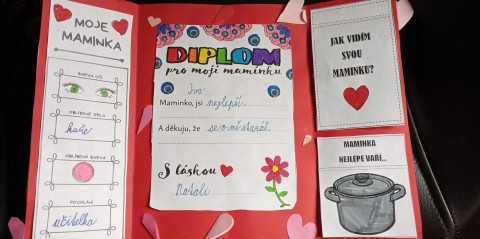 MOJE
MAMINKA
BARVA OČÍ
OBLÍBENÉ JÍDLO
kuře
OBLÍBENÁ BARVA
POVOLÁNÍ
učitelka
DIPLOM
pro moji maminku
Iva
Maminko, jsi nejlepší.
A děkuji, že se o mě staráš.
S láskou
Natali
JAK VIDÍM
SVOU
MAMINKU?
MAMINKA
NEJLÉPE VAŘÍ...